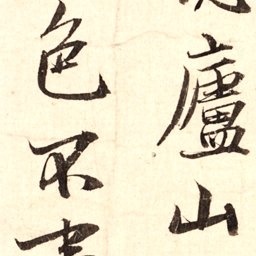 廬山
色不